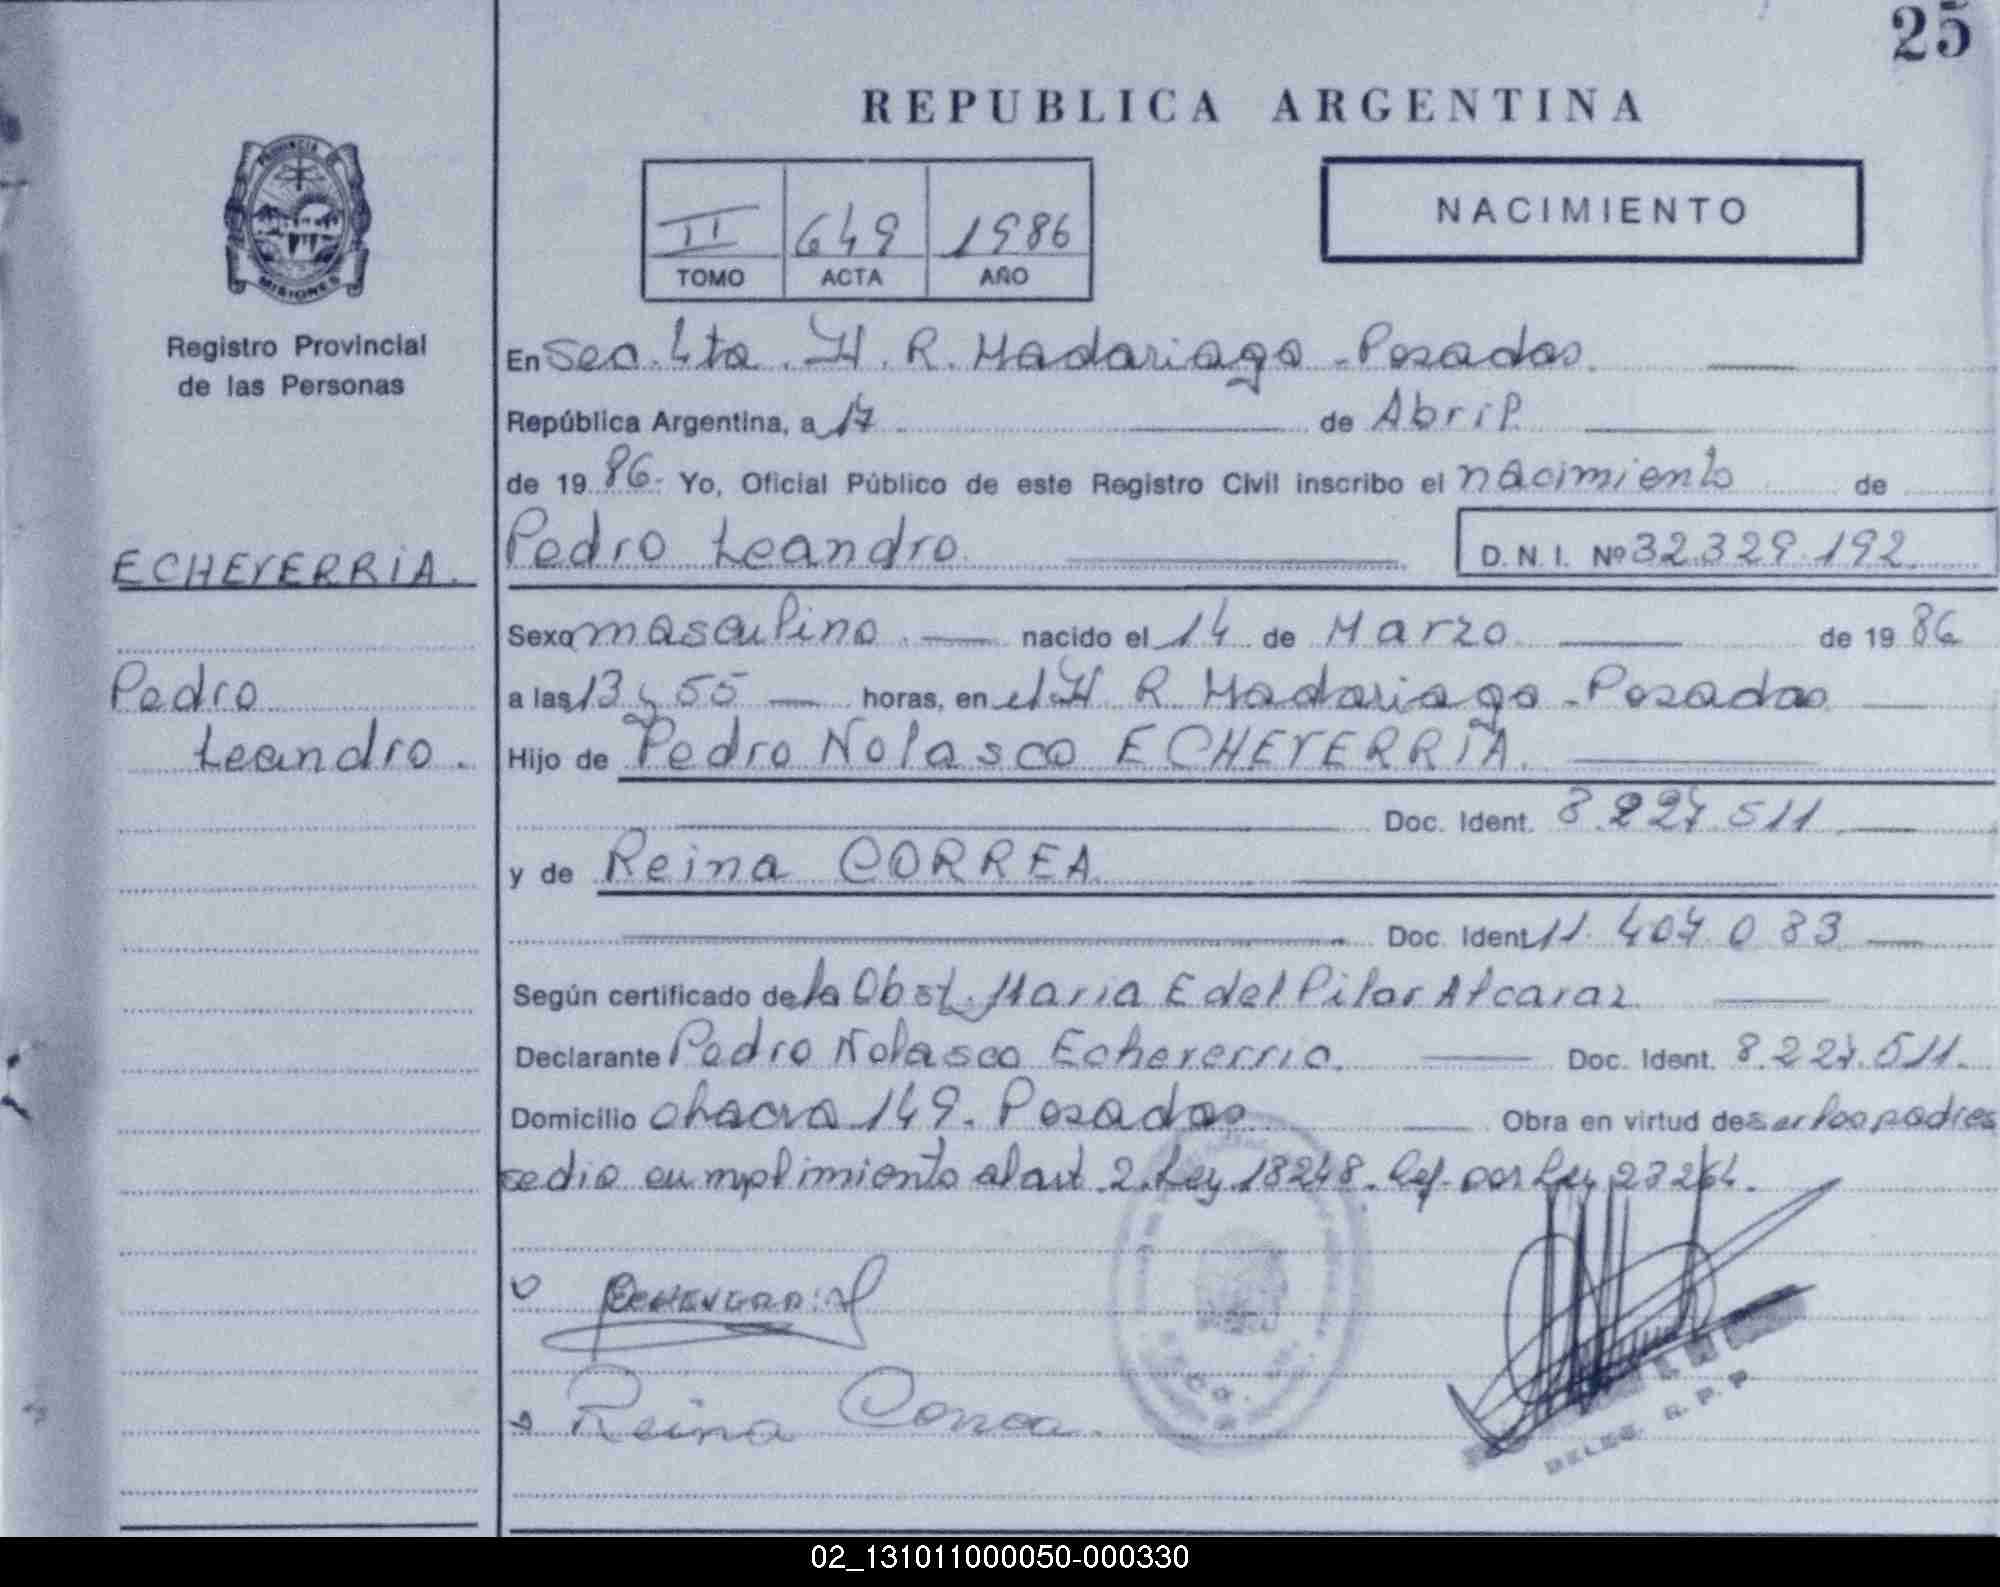 25
REPUBLICA ARGENTINA
PROVINCIA DE
MISIONES
Registro Provincial
de las Personas
II 649 1986
TOMO ACTA AÑO
NACIMIENTO
En Sec. 4ta. H. R. Madariaga - Posadas.
República Argentina, a 17 de Abril
de 19 86. Yo, Oficial Público de este Registro Civil inscribo el nacimiento de
Pedro Leandro
D. N. I. Nº 32.329.192
ECHEVERRIA.
Pedro
Leandro.
Sexo masculino nacido el 14 de Marzo de 19 86
a las 13 y 55 horas, en el H R Madariaga - Posadas
Hijo de Pedro Nolasco ECHEVERRIA.
Doc. Ident. 8.227.511
y de Reina CORREA
Doc. Ident. 11.407.083
Según certificado de la Obst. Maria E del Pilar Alcaraz
Declarante Pedro Nolasco Echeverria. Doc. Ident. 8.227.511.
Domicilio chacra 149. Posadas Obra en virtud de ser los padres
se dio cumplimiento al art. 2. Ley 18248. Ref. por Ley 23264.
Reina Correa.
DELEG. R. P. P.
02_131011000050-000330